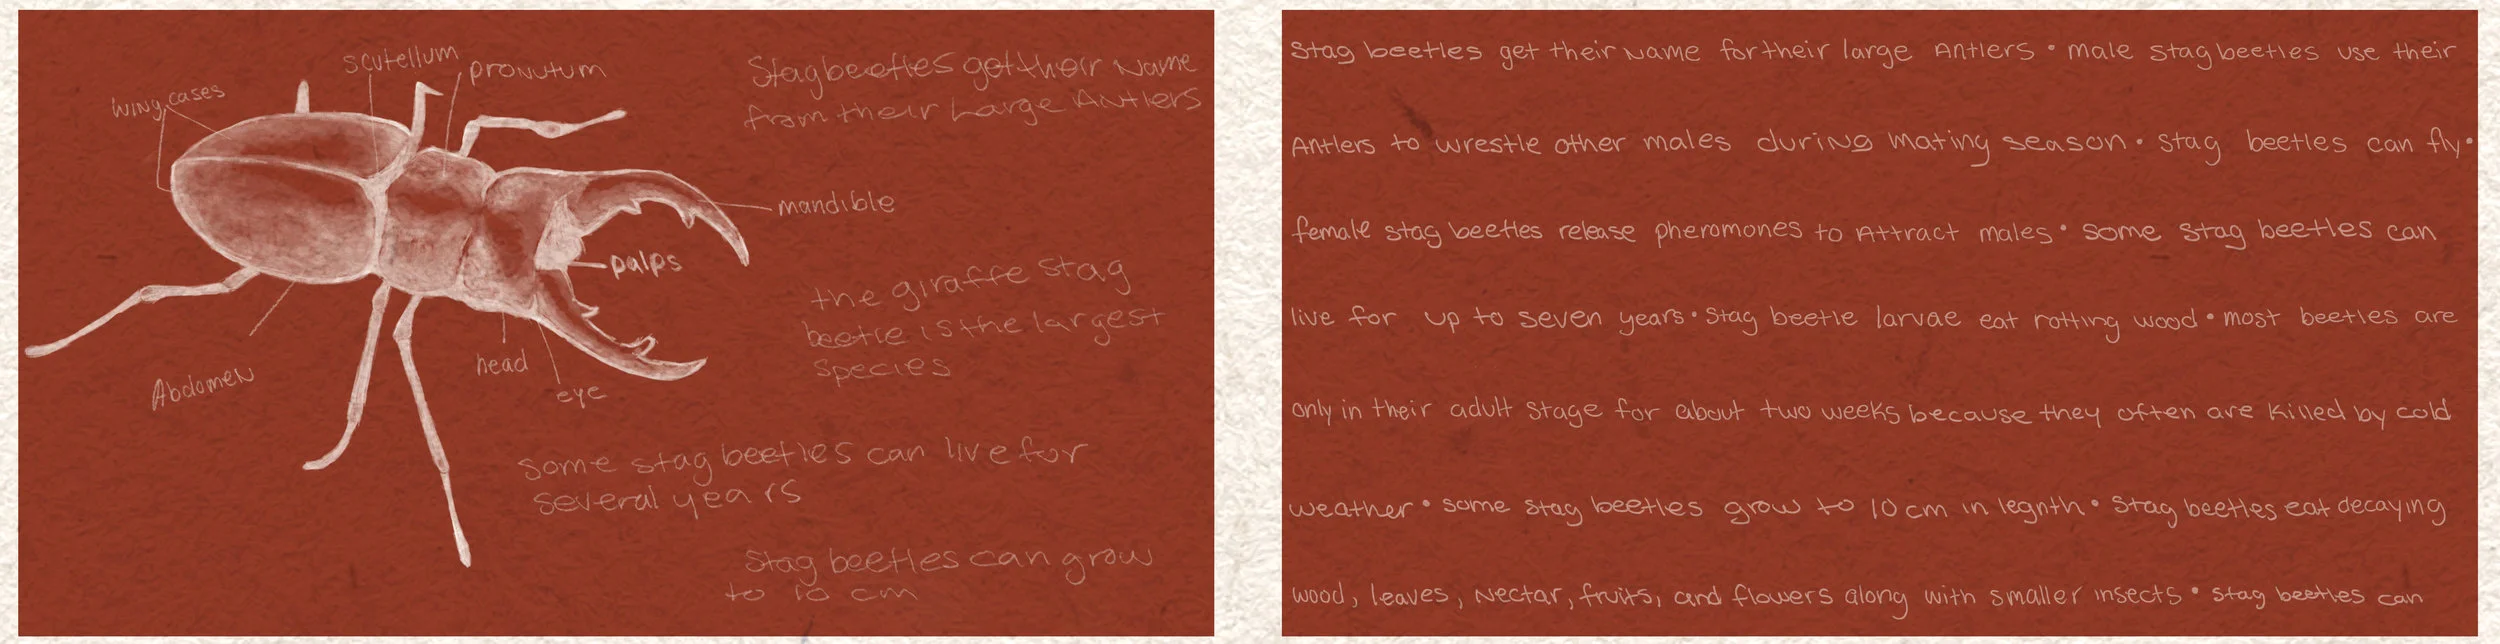 scutellum
pronutum
wing cases
Stag beetles get their Name
from their Large Antlers
mandible
palps
the giraffe stag
beetle is the largest
species
head
eye
Abdomen
some stag beetles can live for
several years
Stag beetles can grow
to 10 cm
Stag beetles get their Name for their large Antlers • male stag beetles use their
Antlers to wrestle other males during mating season • stag beetles can fly •
female stag beetles release pheromones to Attract males • some stag beetles can
live for up to seven years • stag beetle larvae eat rotting wood • most beetles are
only in their adult stage for about two weeks because they often are killed by cold
weather • some stag beetles grow to 10 cm in legnth • Stag beetles eat decaying
wood, leaves, Nectar, fruits, and flowers along with smaller insects • stag beetles can